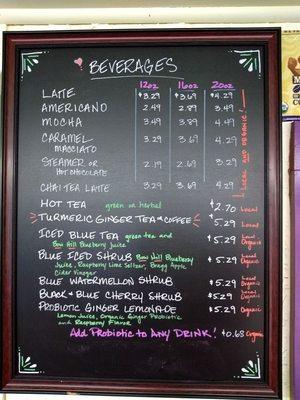 BEVERAGES
12oz 16oz 20oz
LATTE $3.29 $3.69 $4.29
AMERICANO 2.49 2.89 3.49
MOCHA 3.49 3.89 4.49
CARAMEL MACCIATO 3.29 3.69 4.29
STEAMER OR HOT CHOCOLATE 2.19 2.69 3.29
CHAI TEA LATTE 3.29 3.69 4.29
LOCAL AND ORGANIC!
HOT TEA green or herbal $2.70 Local
TURMERIC GINGER TEA & COFFEE $5.29 Local
ICED BLUE TEA green tea and $5.29 Local Organic
Bow Hill Blueberry Juice
BLUE ICED SHRUB Bow Hill Blueberry $5.29 Local Organic
Juice, Raspberry Lime Seltzer, Bragg Apple
Cider Vinegar
BLUE WATERMELON SHRUB $5.29 Local Organic
BLACK & BLUE CHERRY SHRUB $5.29 Local Organic
PROBIOTIC GINGER LEMONADE $5.29 Local Organic
Lemon Juice, Organic Ginger Probiotic
and Raspberry Flavor
Add Probiotic to Any DRINK! $0.68 Organic